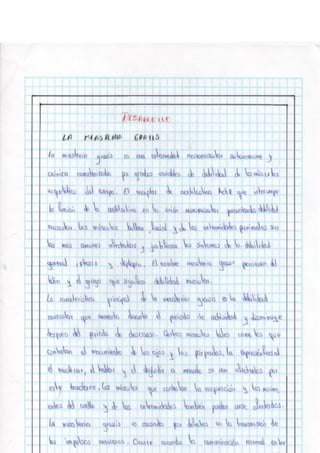 DESARROLLO
LA MIASTENIA GRAVIS
La miastenia gravis es una enfermedad neuromuscular autoinmune y
crónica caracterizada por grados variables de debilidad de los músculos
esqueléticos del cuerpo. El receptor de acetilcolina AchR que interrumpe
la función de la acetilcolina en la unión neuromuscular presentando debilidad
muscular. Los músculos bulbar facial y de las extremidades proximales son
los más afectados y los síntomas de la debilidad
ptosis y diplopía. El nombre miastenia gravis proviene del
latín y el griego que significa debilidad muscular.
La característica principal de la miastenia gravis es la debilidad
muscular que aumenta durante el periodo de actividad y disminuye
después del periodo de descanso. Ciertos músculos tales como los que
controlan el movimiento de los ojos y los párpados, la expresión facial
el masticar, el hablar y el deglutir a menudo se ven afectados por
este trastorno, los músculos que controlan la respiración y los movimi
entos del cuello y de las extremidades también pueden verse afectados.
La miastenia gravis es causada por defectos en la transmisión de
los impulsos nerviosos. Ocurre cuando la comunicación normal entre